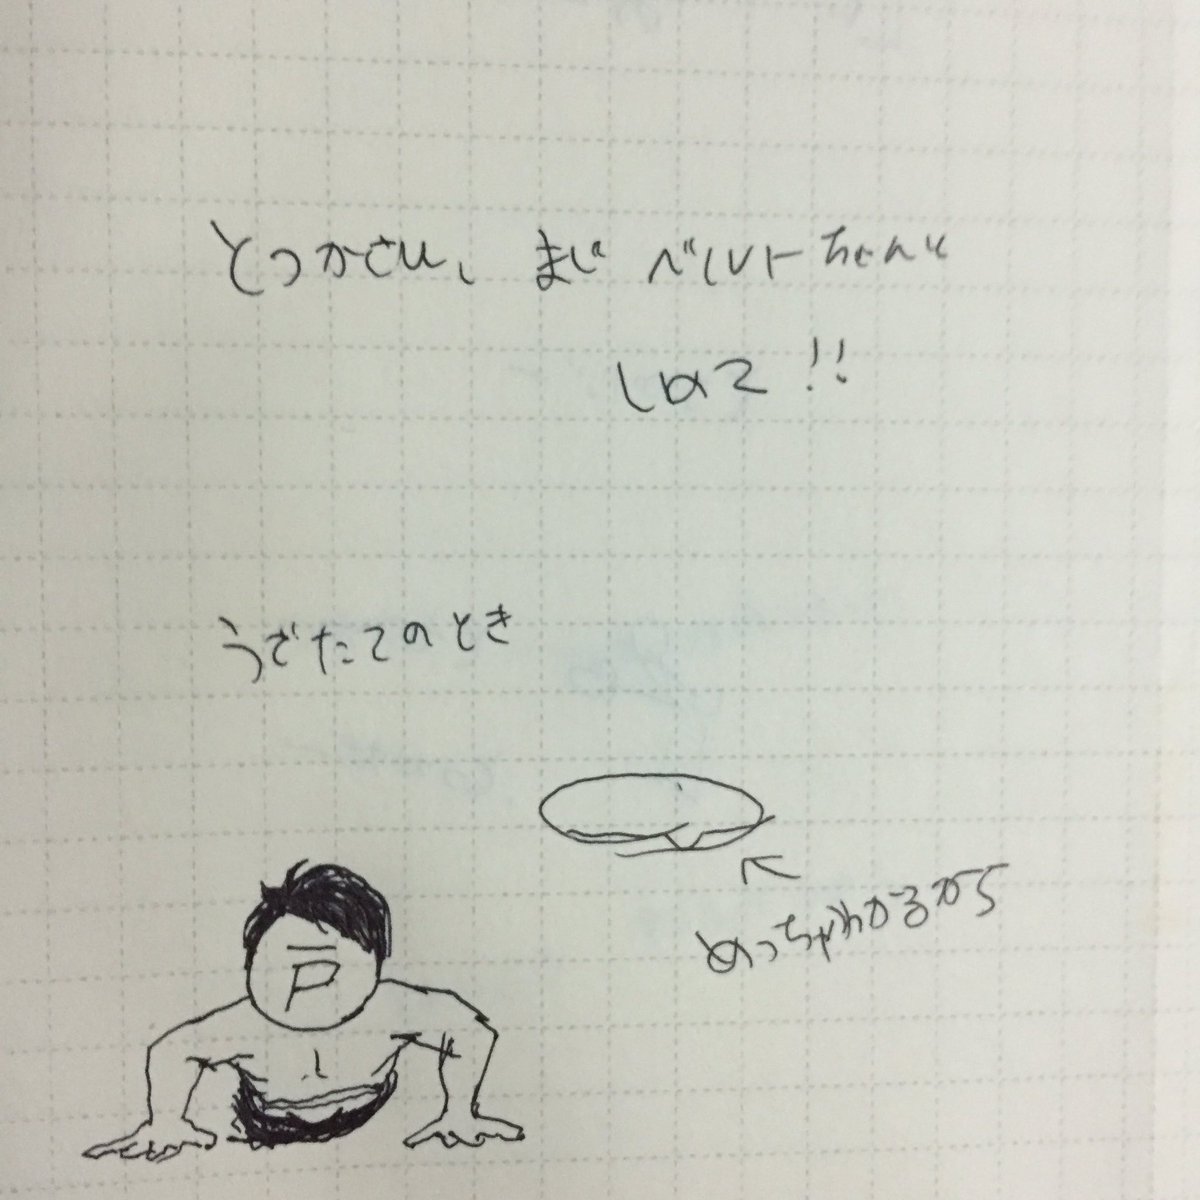 とつかさん、まじベルトちゃんと
しめて!!
うでたてのとき
めっちゃわかるから
P